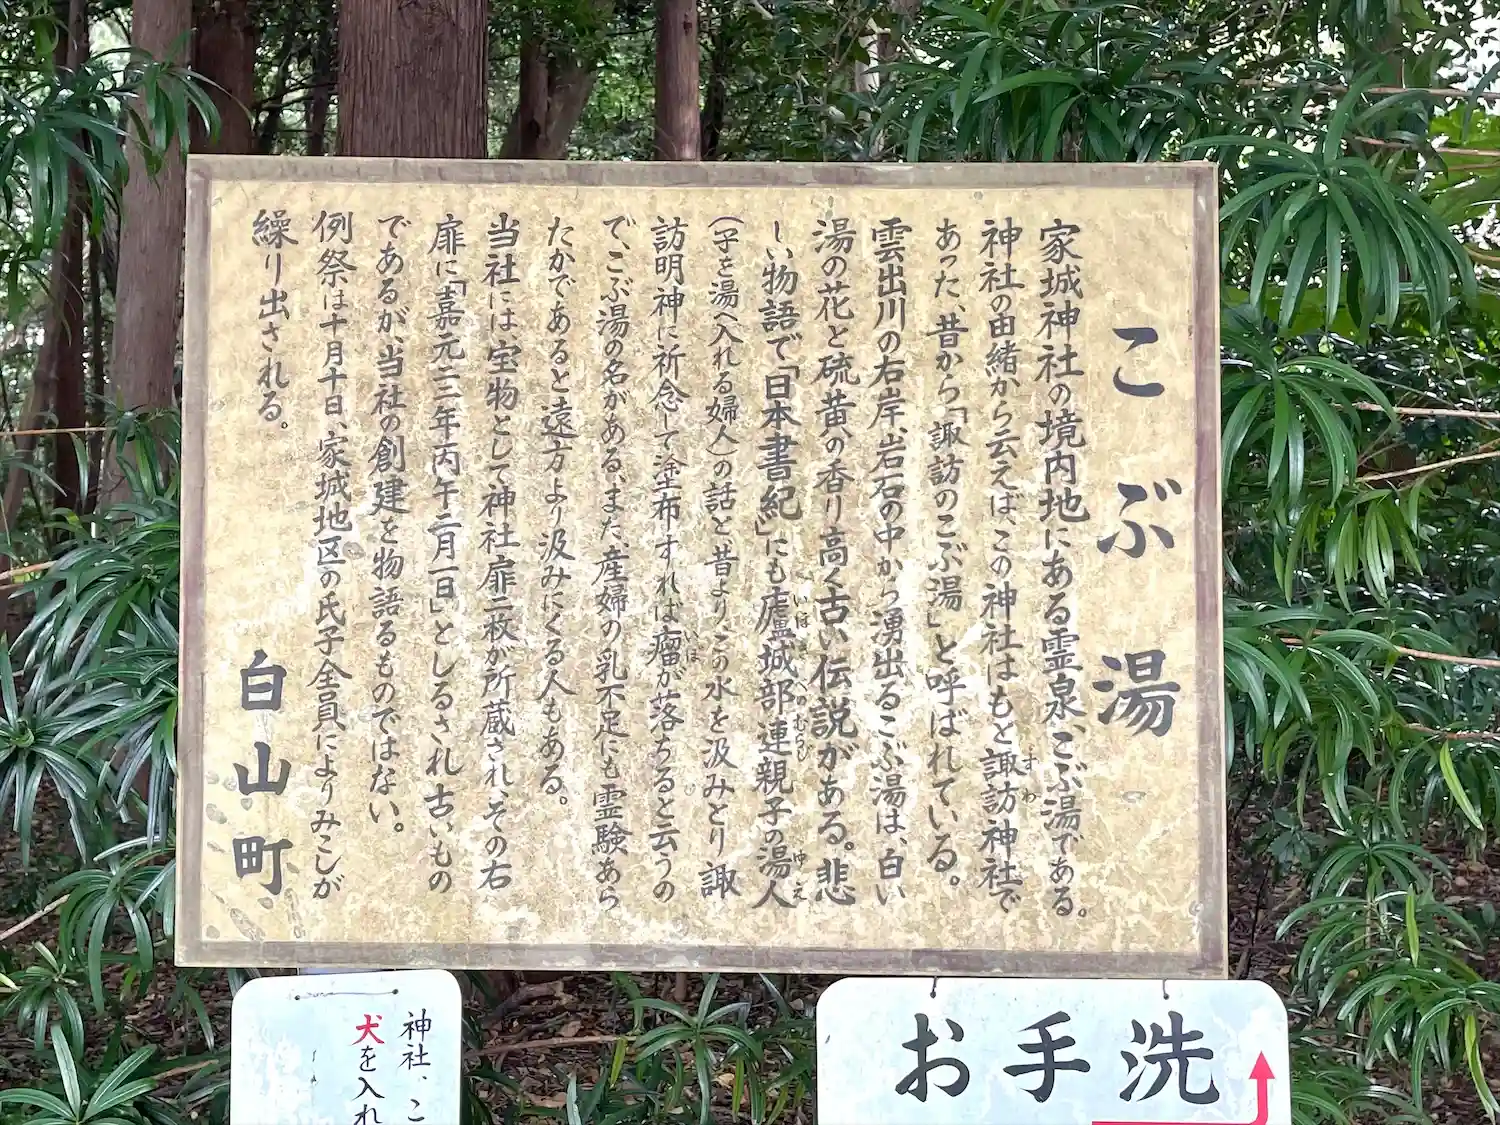 こぶ湯
家城神社の境内地にある霊泉、こぶ湯である。
神社の由緒から云えば、この神社はもと諏訪神社で
すわ
あった、昔から「諏訪のこぶ湯」と呼ばれている。
雲出川の右岸、岩石の中から湧出るこぶ湯は、白い
湯の花と硫黄の香り高く古い伝説がある。悲
しい物語で「日本書紀」にも廬城部連親子の湯人
いほきべのむらじ
ゆえ
(子を湯へ入れる婦人)の話と、昔より、この水を汲みとり諏
訪明神に祈念して塗布すれば瘤が落ちると云うの
いぼ
で、こぶ湯の名がある、また、産婦の乳不足にも霊験あら
たかであると遠方より汲みにくる人もある。
当社には宝物として神社扉二枚が所蔵され、その右
扉に「嘉元三年丙午二月一日」としるされ古いもの
であるが、当社の創建を物語るものではない。
例祭は十月十日、家城地区の氏子全員によりみこしが
繰り出される。
白山町
お手洗
神社、こ
犬を入れ